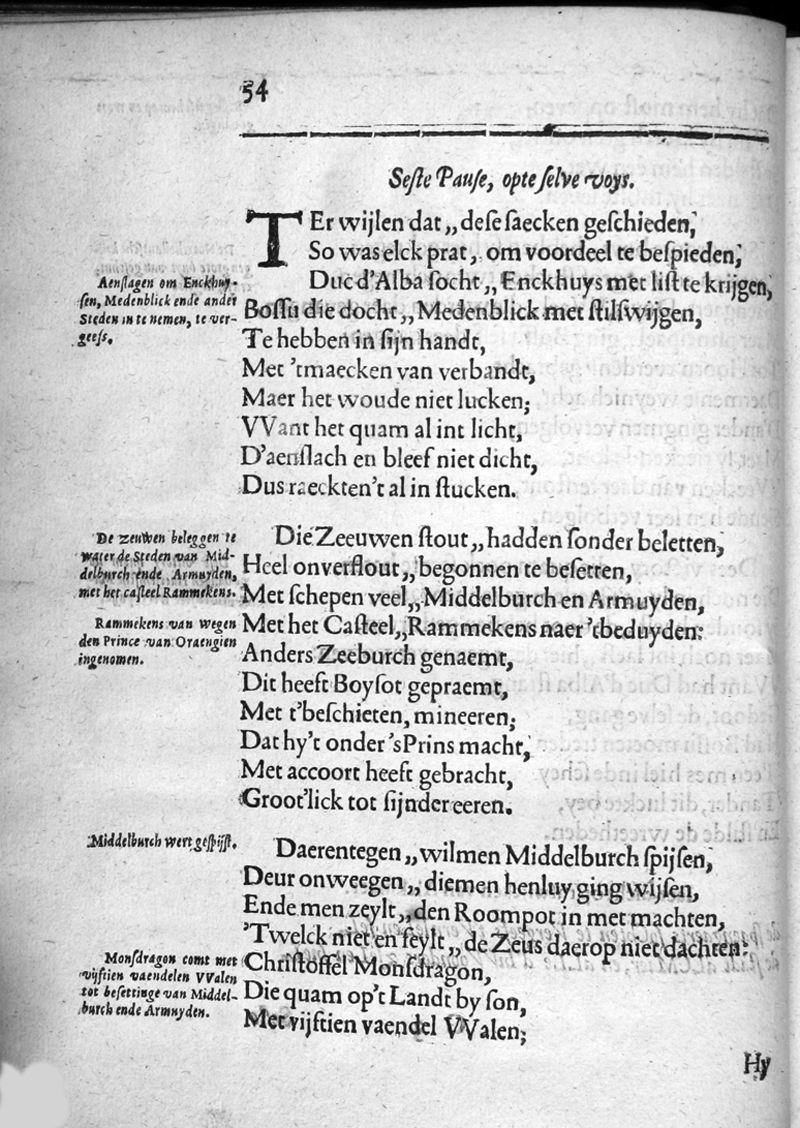 54
Seste Pause, opte selve voys.
TEr wijlen dat„ dese saecken geschieden,
So was elck prat, om voordeel te bespieden,
Duc d'Alba socht„ Enckhuys met list te krijgen,
Bossu die docht„ Medenblick met stilswijgen,
Te hebben in sijn handt,
Met 'tmaecken van verbandt,
Maer het woude niet lucken;
VVant het quam al int licht,
D'aenslach en bleef niet dicht,
Dus raeckten't al in stucken.
Aenslagen om Enckhuy-
sen, Medenblick ende ander
Steden in te nemen, te ver-
geefs.
Die Zeeuwen stout„ hadden sonder beletten,
Heel onverflout„ begonnen te besetten,
Met schepen veel„ Middelburch en Armuyden,
Met het Casteel„ Rammekens naer 'tbeduyden:
Anders Zeeburch genaemt,
Dit heeft Boysot gepraemt,
Met t'beschieten, mineeren;
Dat hy't onder 'sPrins macht,
Met accoort heeft gebracht,
Groot'lick tot sijnder eeren.
De zeuwen beleggen te
water de Steden van Mid-
delburch ende Armuyden,
met het casteel Rammekens.
Rammekens van wegen
den Prince van Oraengien
ingenomen.
Daerentegen„ wilmen Middelburch spijsen,
Deur onweegen„ diemen henluy ging wijsen,
Ende men zeylt„ den Roompot in met machten,
'Twelck niet en feylt„ de Zeus daerop niet dachten:
Christoffel Monsdragon,
Die quam op't Landt by son,
Met vijftien vaendel VValen;
Middelburch wert gespijst.
Monsdragon comt met
vijftien vaendelen VValen
tot besettinge van Middel-
burch ende Armuyden.
Hy